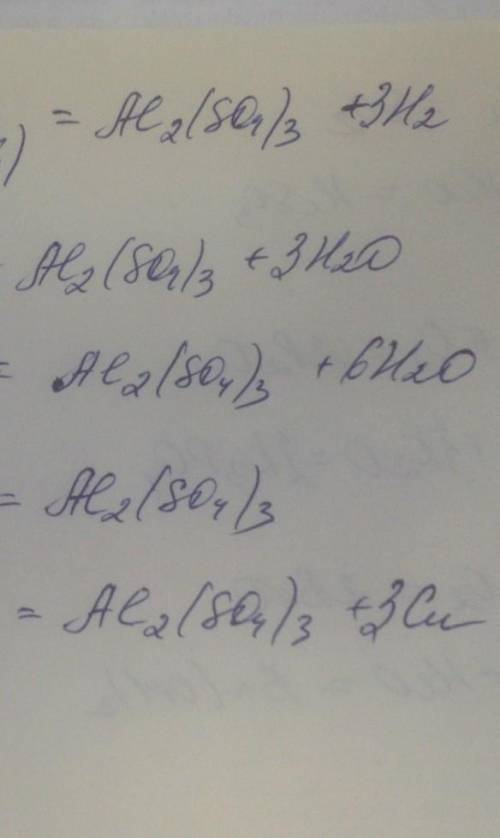 ) = Al₂(SO₄)₃ +3H₂
Al₂(SO₄)₃ +3H₂O
= Al₂(SO₄)₃ +6H₂O
= Al₂(SO₄)₃
= Al₂(SO₄)₃ +3Cu